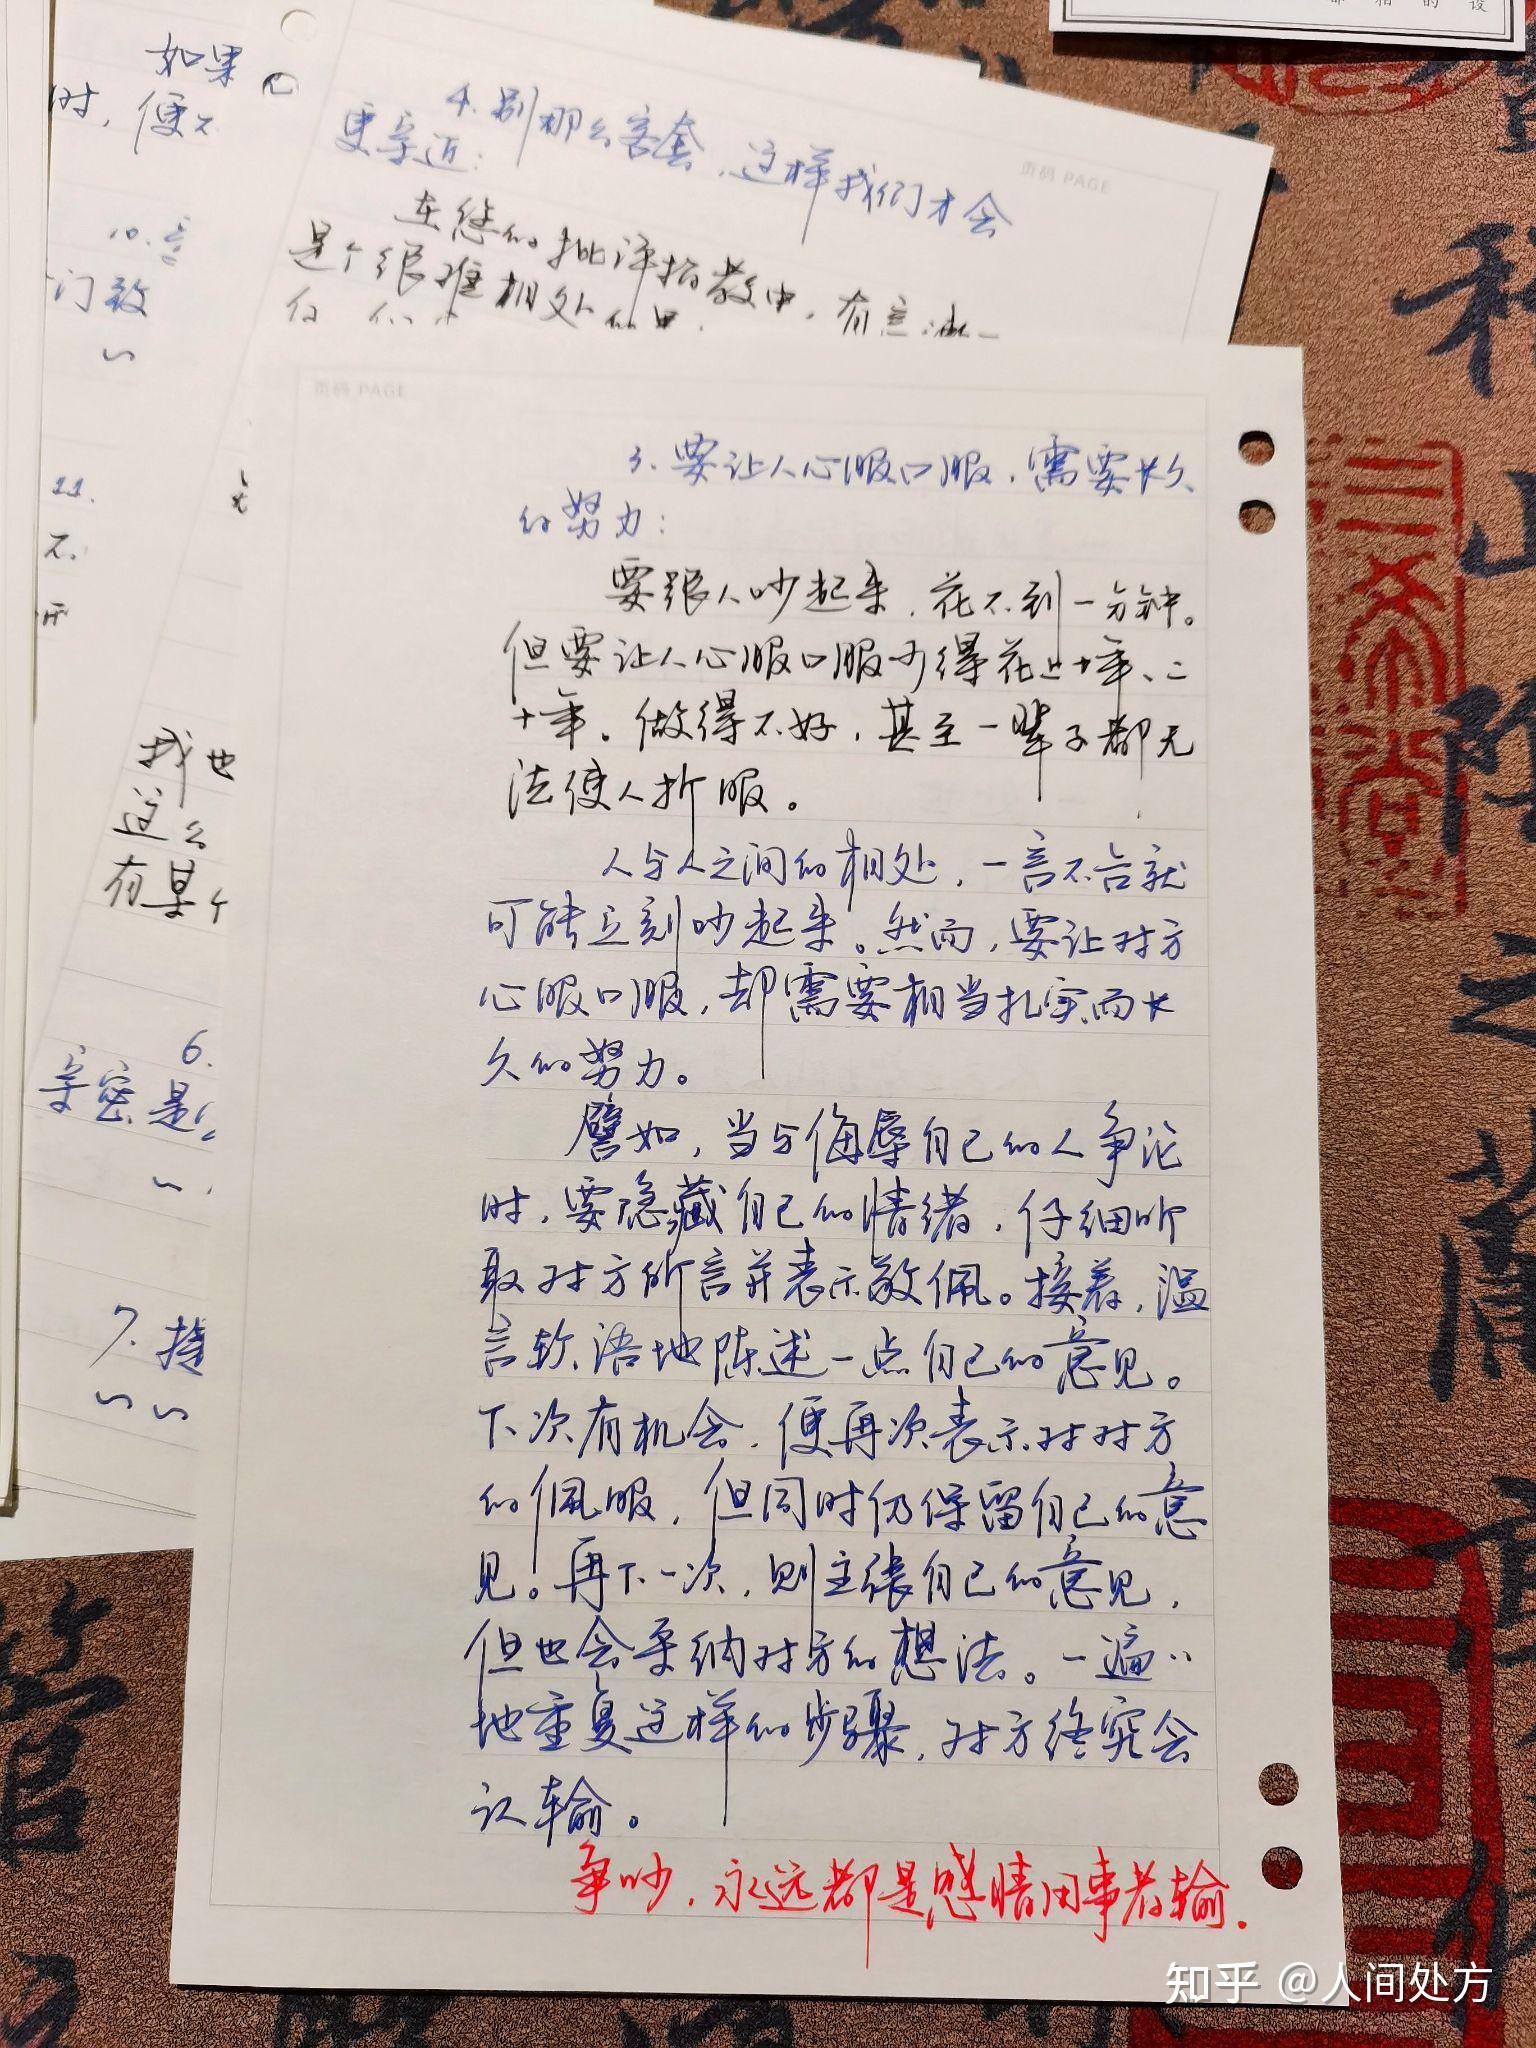 如果
时，便不
10.
门敬
11.
不
4.别那么客套，这样我们才会
更亲近：
页码 PAGE
在您的批评指教中，有意
是个很难相处的
我也
这么
有某个
6.
亲密是
7.
页码 PAGE
3.要让人心服口服，需要长久
的努力：
要跟人吵起来，花不到一分钟。
但要让人心服口服可得花上十年、二
十年。做得不好，甚至一辈子都无
法使人折服。
人与人之间的相处，一言不合就
可能立刻吵起来。然而，要让对方
心服口服，却需要相当扎实而长
久的努力。
譬如，当与侮辱自己的人争论
时，要隐藏自己的情绪，仔细听
取对方所言并表示敬佩。接着，温
言软语地陈述一点自己的意见。
下次有机会，便再次表示对对方
的佩服，但同时仍保留自己的意
见。再下一次，则主张自己的意见，
但也会采纳对方的想法。一遍〃
地重复这样的步骤，对方终究会
认输。
争吵，永远都是感情用事者输.
知乎 @人间处方